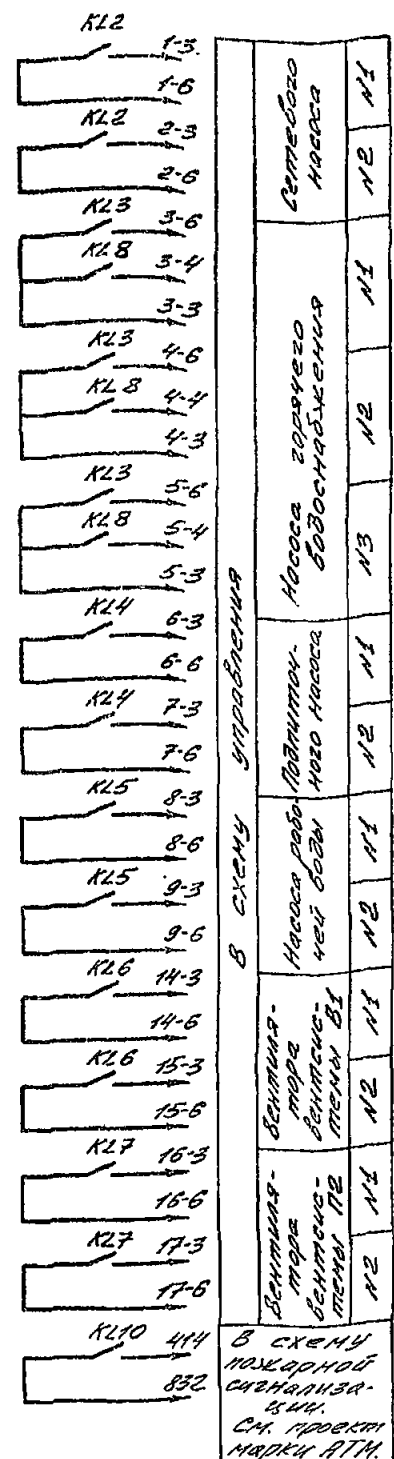 KL2
1-3
1-6
KL2
2-3
2-6
KL3
3-6
KL8
3-4
3-3
KL3
4-6
KL8
4-4
4-3
KL3
5-6
KL8
5-4
5-3
KL4
6-3
6-6
KL4
7-3
7-6
KL5
8-3
8-6
KL5
9-3
9-6
KL6
14-3
14-6
KL6
15-3
15-6
KL7
16-3
16-6
KL7
17-3
17-6
KL10
414
832
В схему управления
Сетевого
насоса
N1
N2
Насоса горячего
водоснабжения
N1
N2
N3
Подпиточ-
ного насоса
N1
N2
Насоса рабо-
чей воды
N1
N2
Вентиля-
тора
вентсис-
темы В1
N1
N2
Вентиля-
тора
вентсис-
темы П2
N1
N2
В схему
пожарной
сигнализа-
ции.
См. проект
марки АТМ.